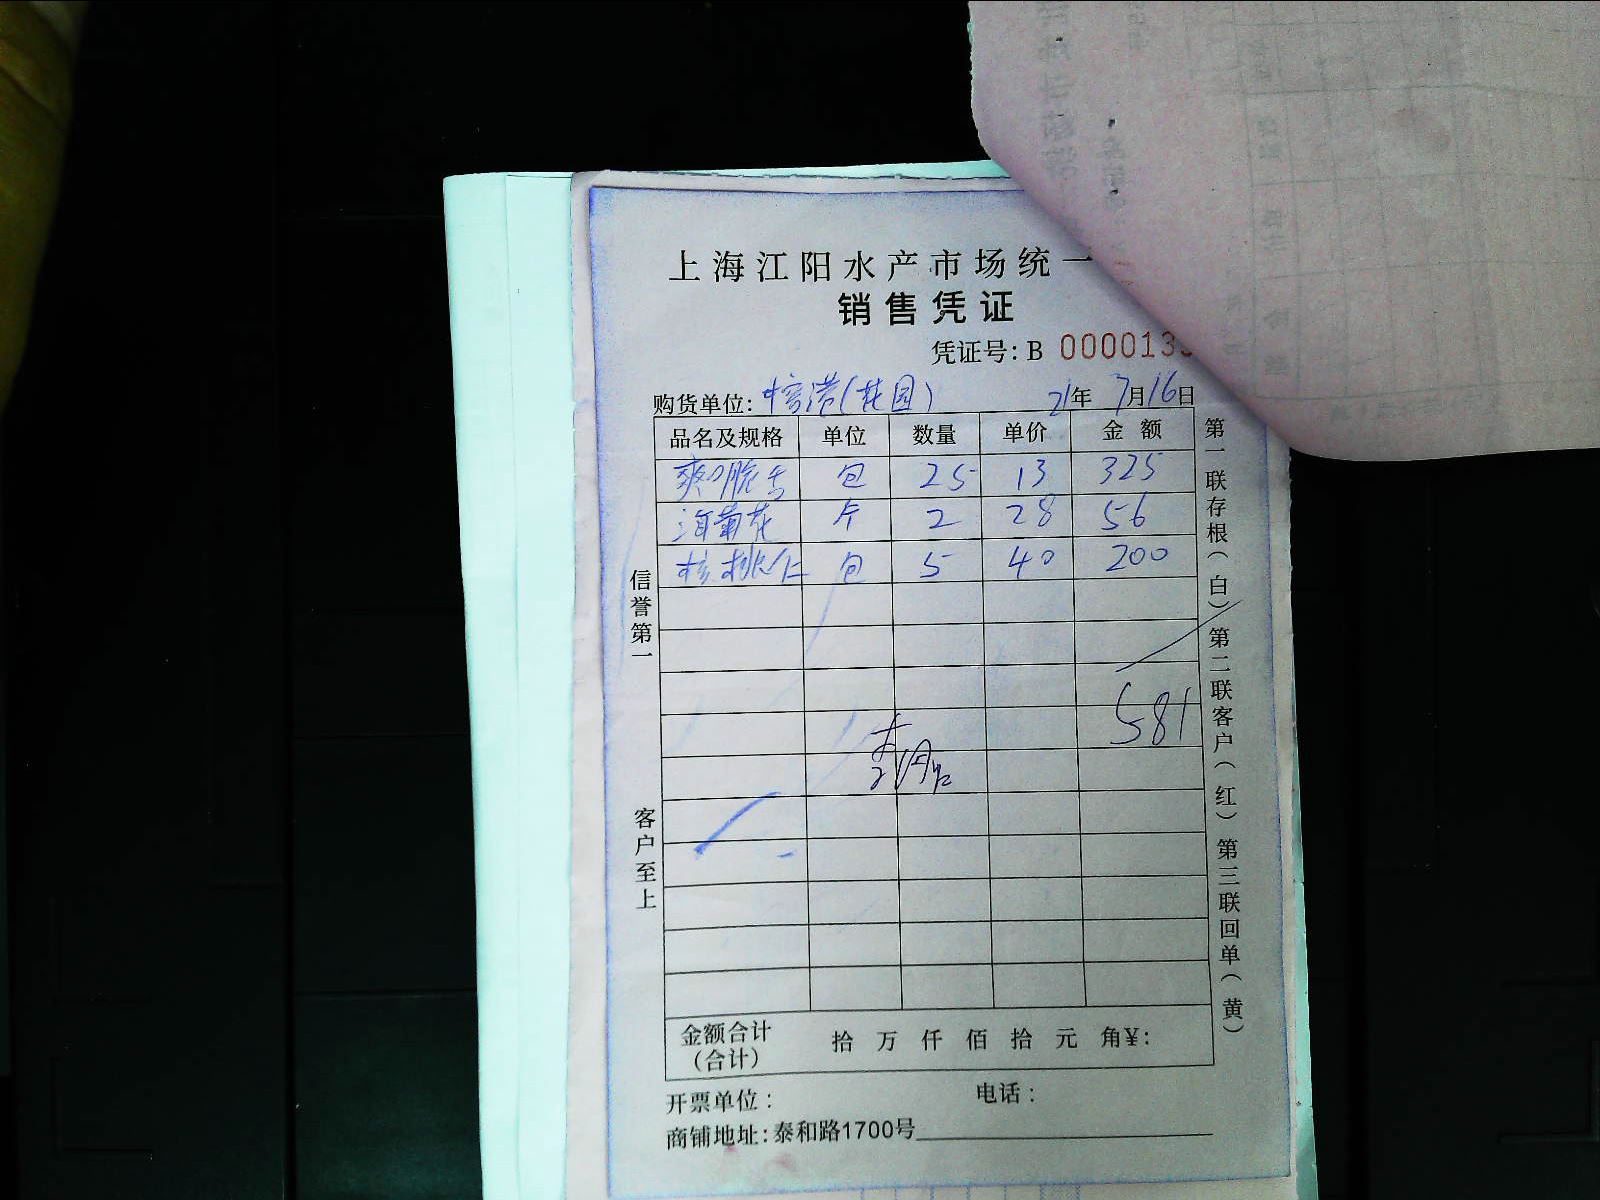 上海江阳水产市场统一
销售凭证
凭证号: B 000013
购货单位: 榕港(花园) 21年 7月16日
品名及规格 单位 数量 单价 金额
爽口脆舌 包 25 13 325
海菊花 个 2 28 56
核桃仁 包 5 40 200
581
信誉第一
客户至上
第一联存根(白) 第二联客户(红) 第三联回单(黄)
金额合计 拾 万 仟 佰 拾 元 角¥:
(合计)
开票单位: 电话:
商铺地址: 泰和路1700号